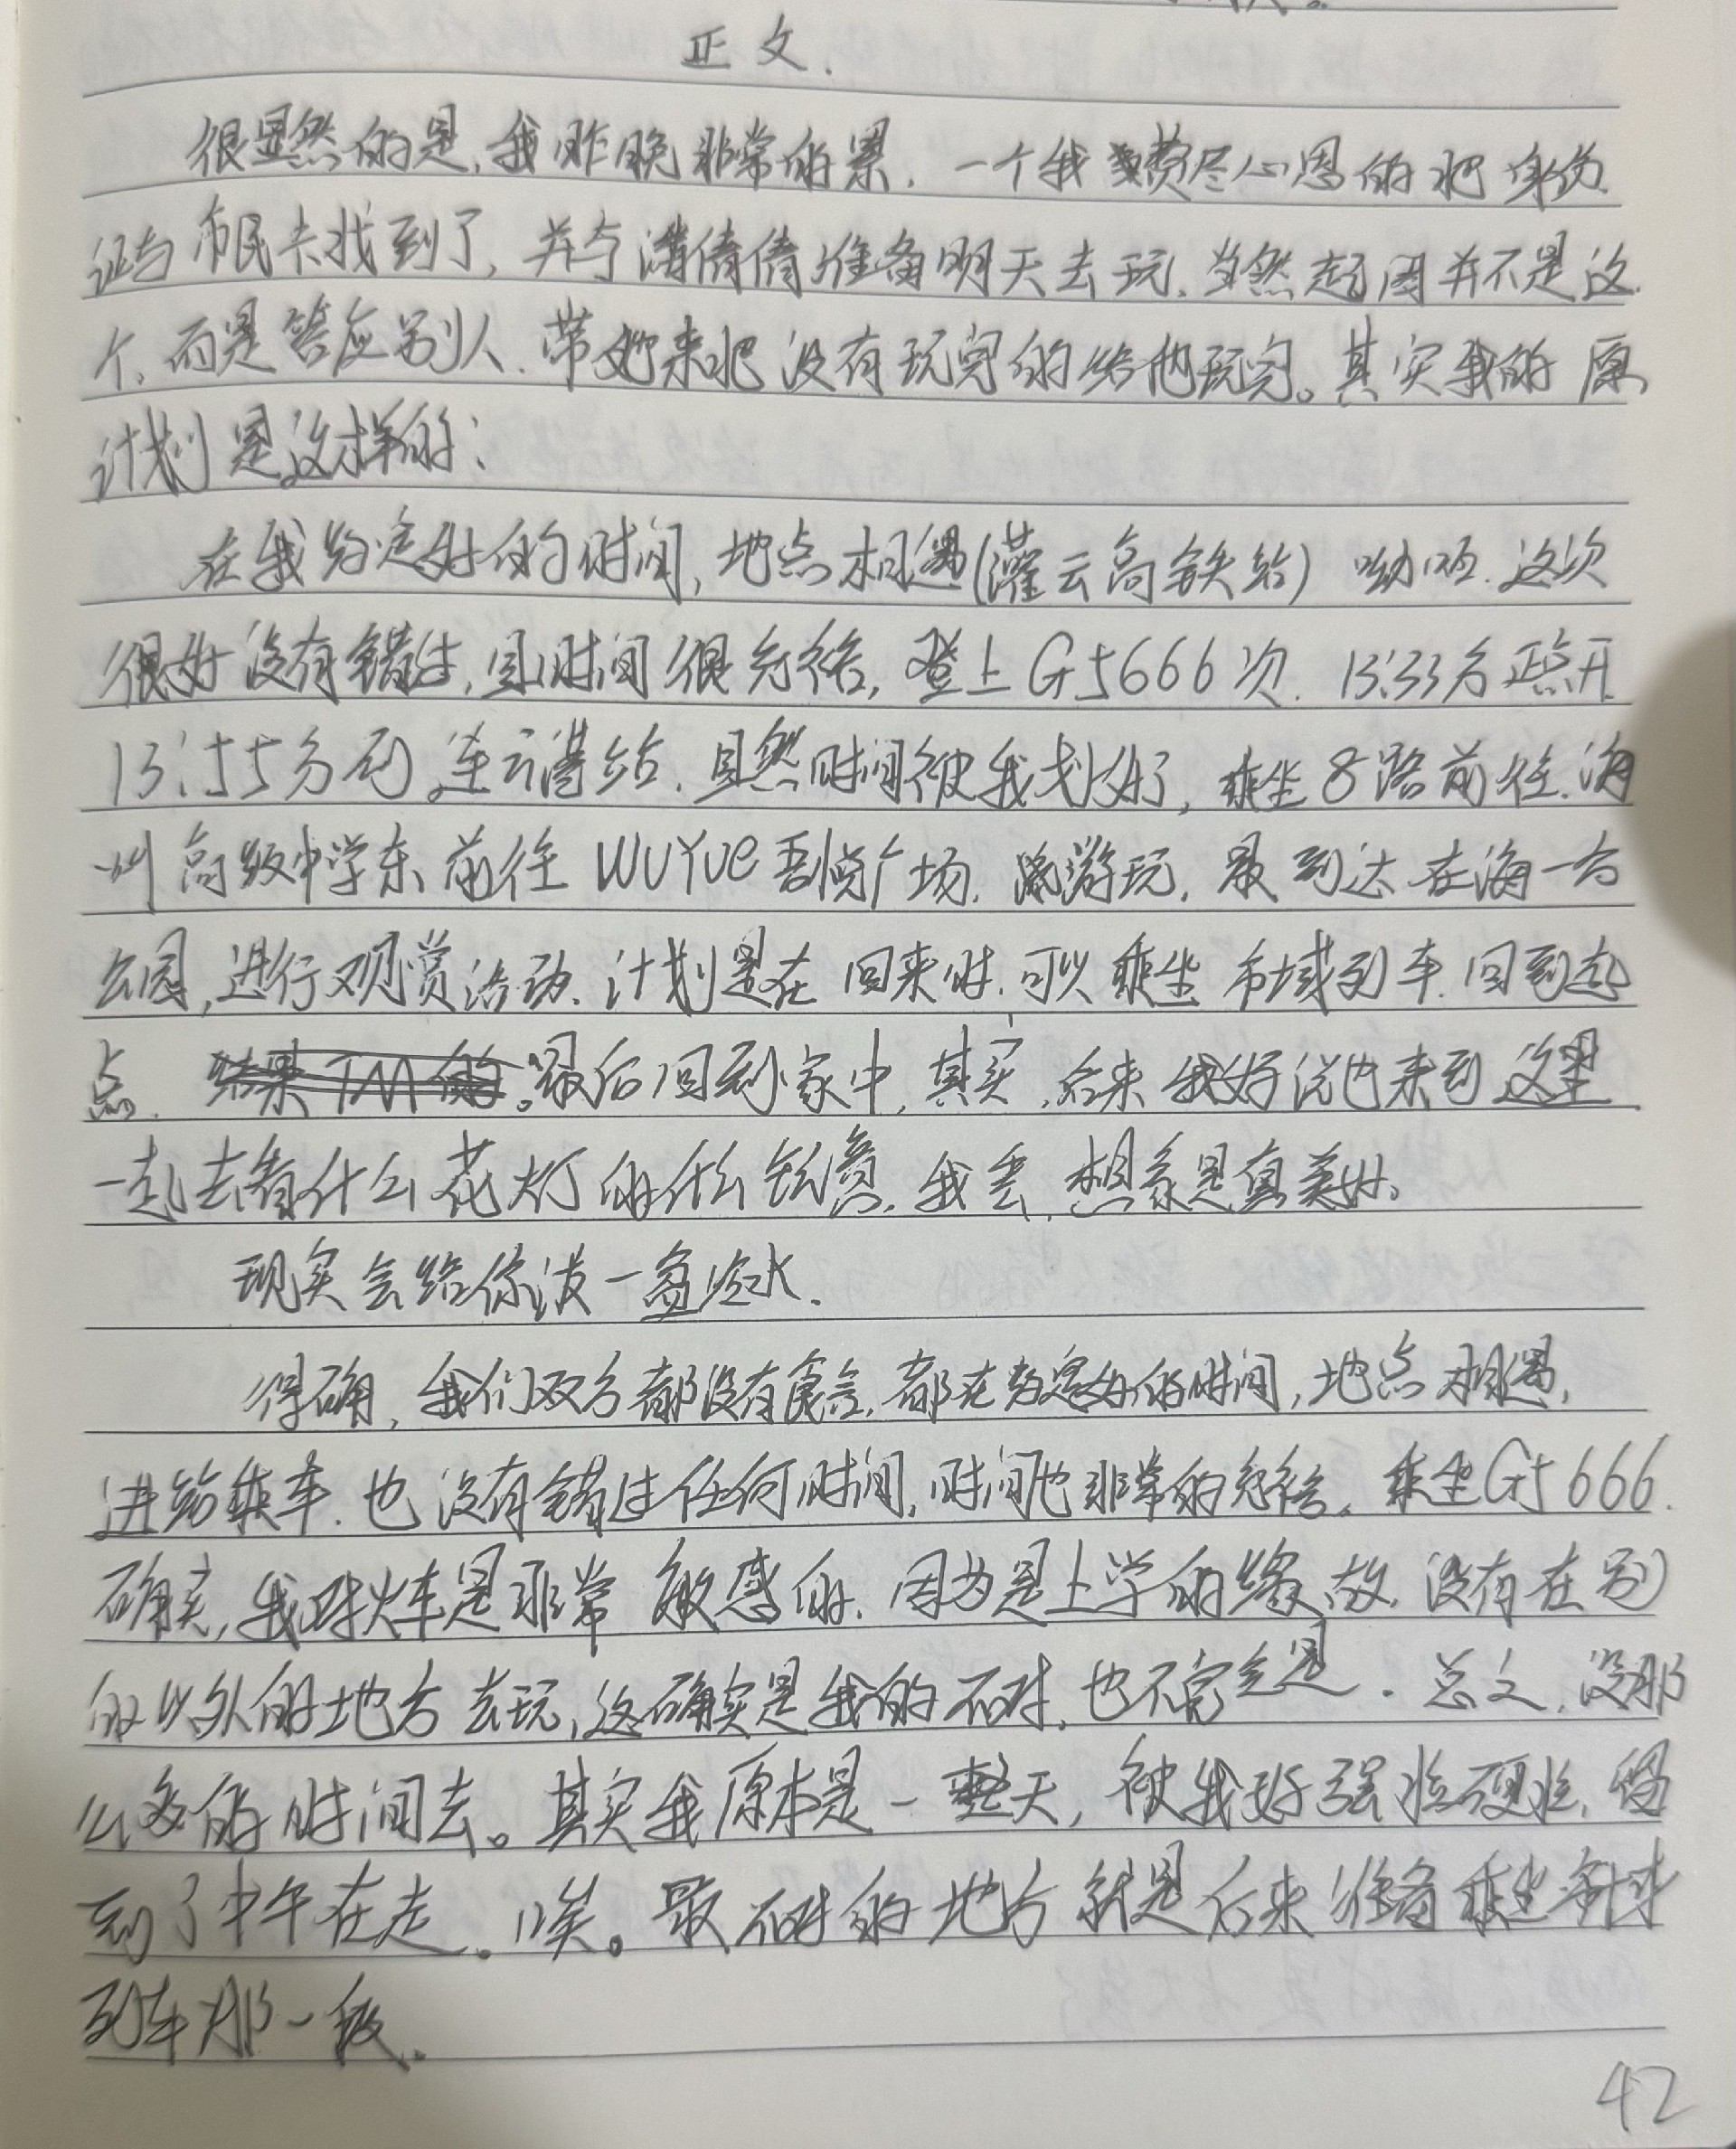 正文.
很显然的是,我昨晚非常的累. 一个我费尽心思的把身份
证与市民卡找到了,并与潘倩倩准备明天去玩.当然起因并不是这
个,而是答应别人.带她来把没有玩完的给他玩完。其实我的原
计划是这样的:
在我约定好的时间,地点相遇(灌云高铁站) 呦呵.这次
很好没有错过,且时间很充裕,登上G5666次. 13:33分正点开
13:55分到连云港站.且然时间被我划好了,乘坐8路前往.海
州高级中学东前往WUYUE吾悦广场.游玩,最到达在海一方
公园,进行观赏活动.计划是在回来时.可以乘坐市域列车.回到起
点. 结果TM的.最后回到家中,其实,后来我好说她来到这里
一起去看什么花灯的什么的.我去.想象是真美好.
现实会给你泼一盆冷水.
得确,我们双方都没有食言.都在约定好的时间,地点相遇,
进站乘车.也没有错过任何时间,时间也非常的充裕。乘坐G5666.
确实,我对火车是非常敏感的.因为是上学的缘故.没有在别
的以外的地方去玩,这确实是我的不对,也不完全是.总之,没那
么多的时间去。其实我原本是一整天,被我好强拉硬拉,得
到了中午在走。唉。最不对的地方就是后来准备乘坐市域
列车那一段.
42